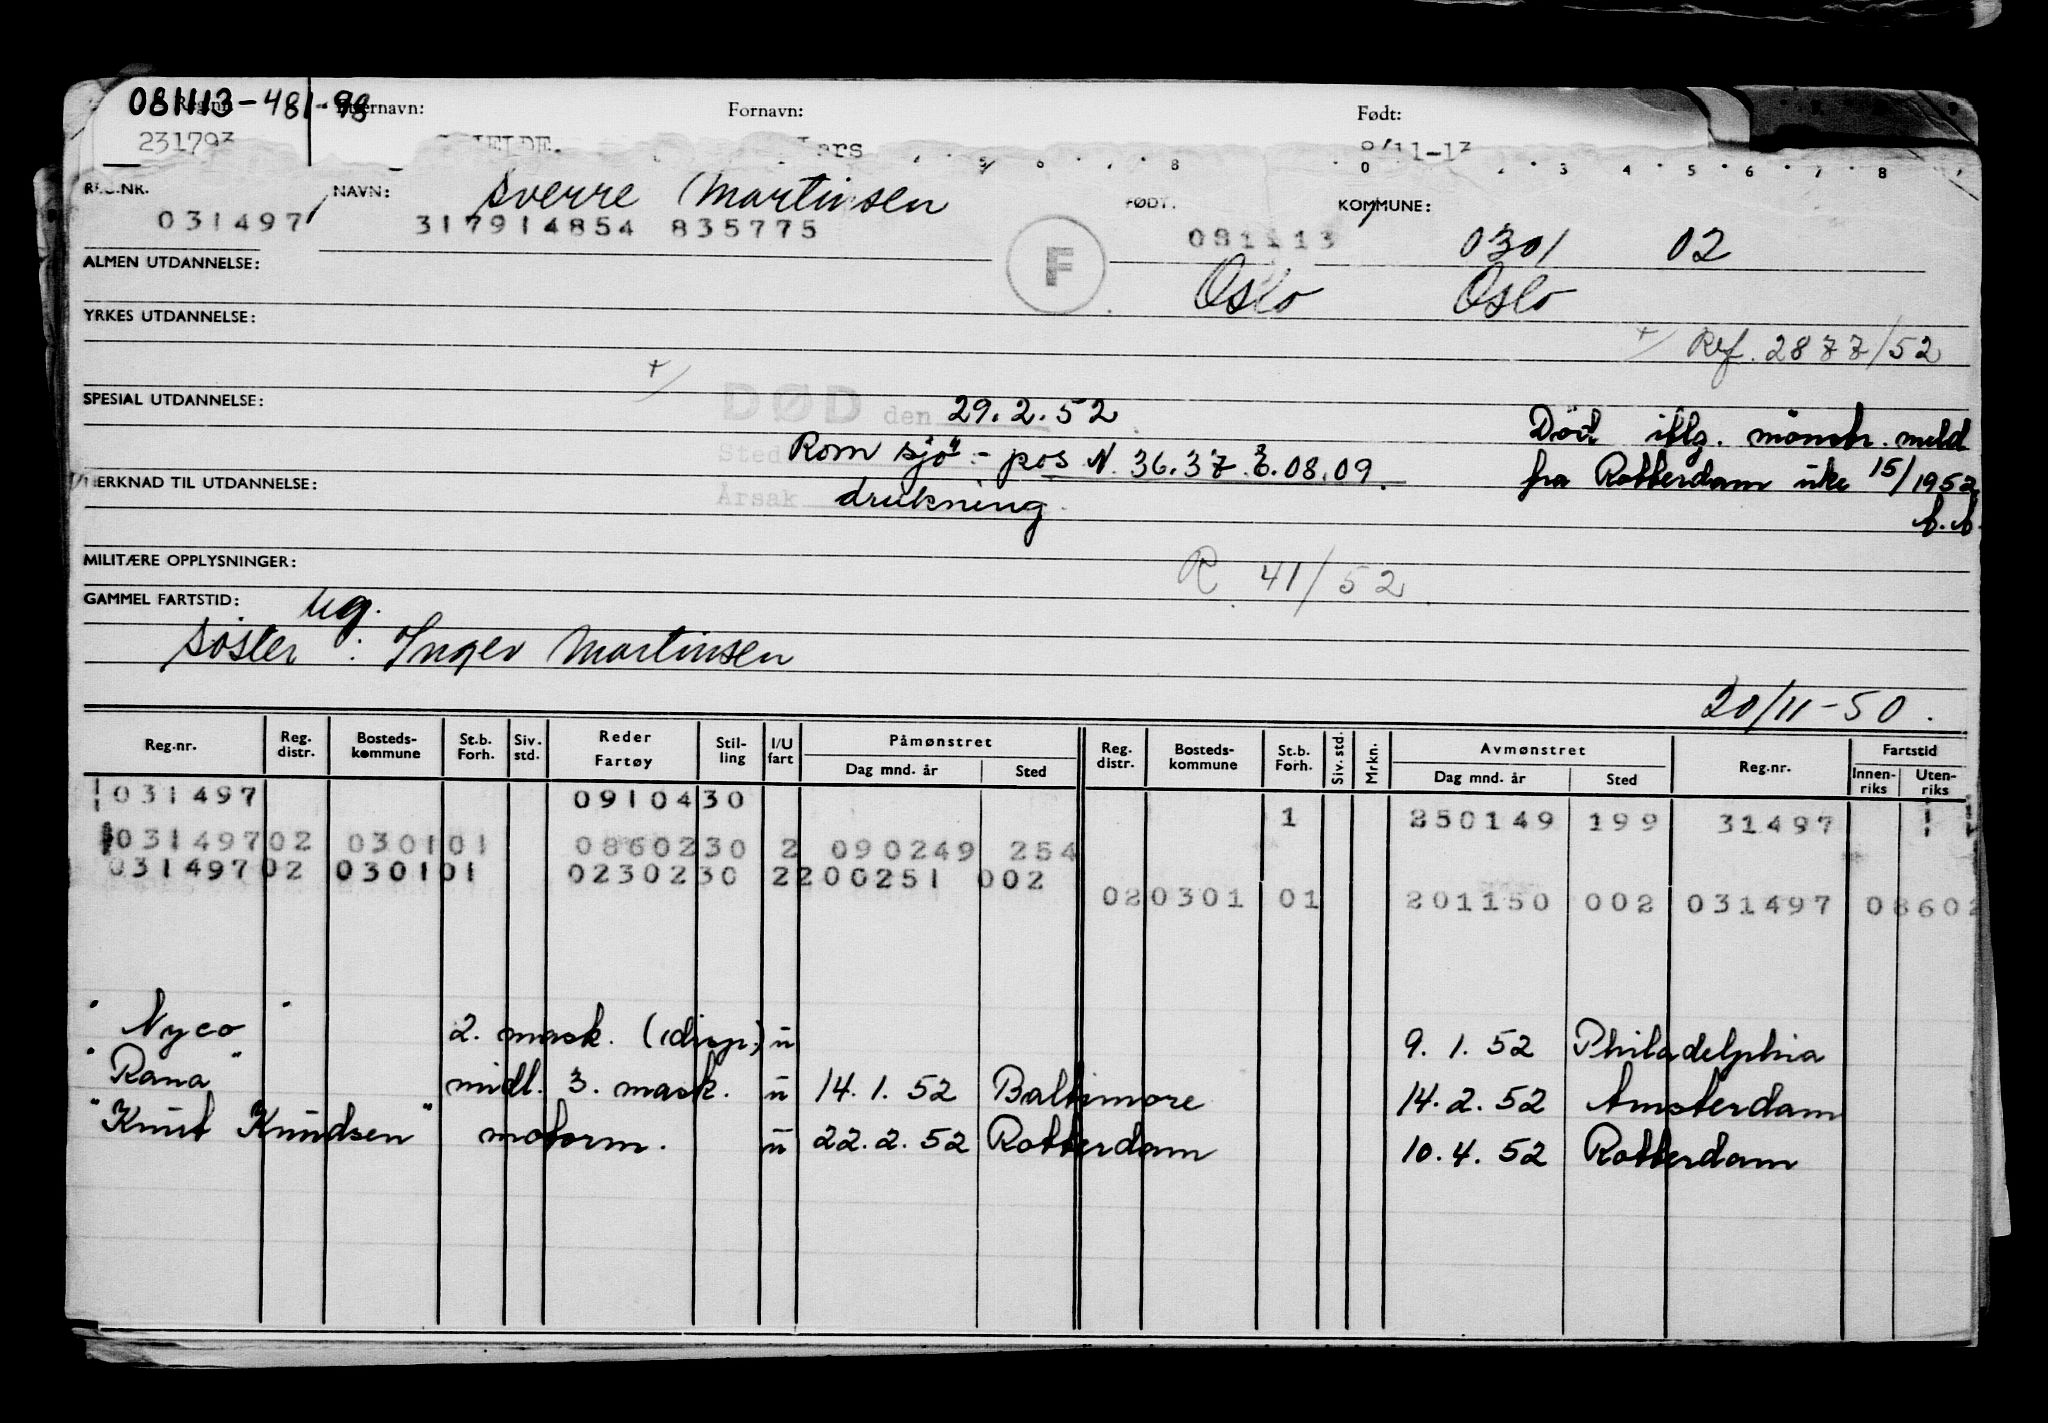 081113-481-98
Fornavn: Født:
231793
REG.NR. NAVN: Sverre Martinsen FØDT. KOMMUNE:
031497 317914854 835775 081113 0301 02
ALMEN UTDANNELSE: F Oslo Oslo
YRKES UTDANNELSE:
Ref. 2877/52
SPESIAL UTDANNELSE: DØD den 29.2.52
Død iflg. mønstr. meld
Sted Rom sjö :- pos N. 36.37. E. 08.09.
fra Rotterdam uke 15/1952
MERKNAD TIL UTDANNELSE: Årsak drukning.
MILITÆRE OPPLYSNINGER: R. 41/52.
GAMMEL FARTSTID: ug.
søster : Inger Martinsen
20/11-50.
Reg.nr. Reg. distr. Bosteds-kommune St.b. Forh. Siv. std. Reder Fartøy Stil-ling I/U fart Påmønstret Dag mnd. år Sted Reg. distr. Bosteds-kommune St.b. Forh. Siv. std. Mrkn. Avmønstret Dag mnd. år Sted Reg.nr. Fartstid Innen-riks Uten-riks
031497 0910430
1 250149 199 31497
031497 02 0301 01 0860230 2 090249 254
031497 02 0301 01 0230230 2 200251 002
02 0301 01 201150 002 031497 08602
"Nyco" 2. mask. (disp.) u 9.1.52 Philadelphia
"Rana" midl. 3. mask. u 14.1.52 Baltimore 14.2.52 Amsterdam
"Knut Knudsen" motorm. u 22.2.52 Rotterdam 10.4.52 Rotterdam